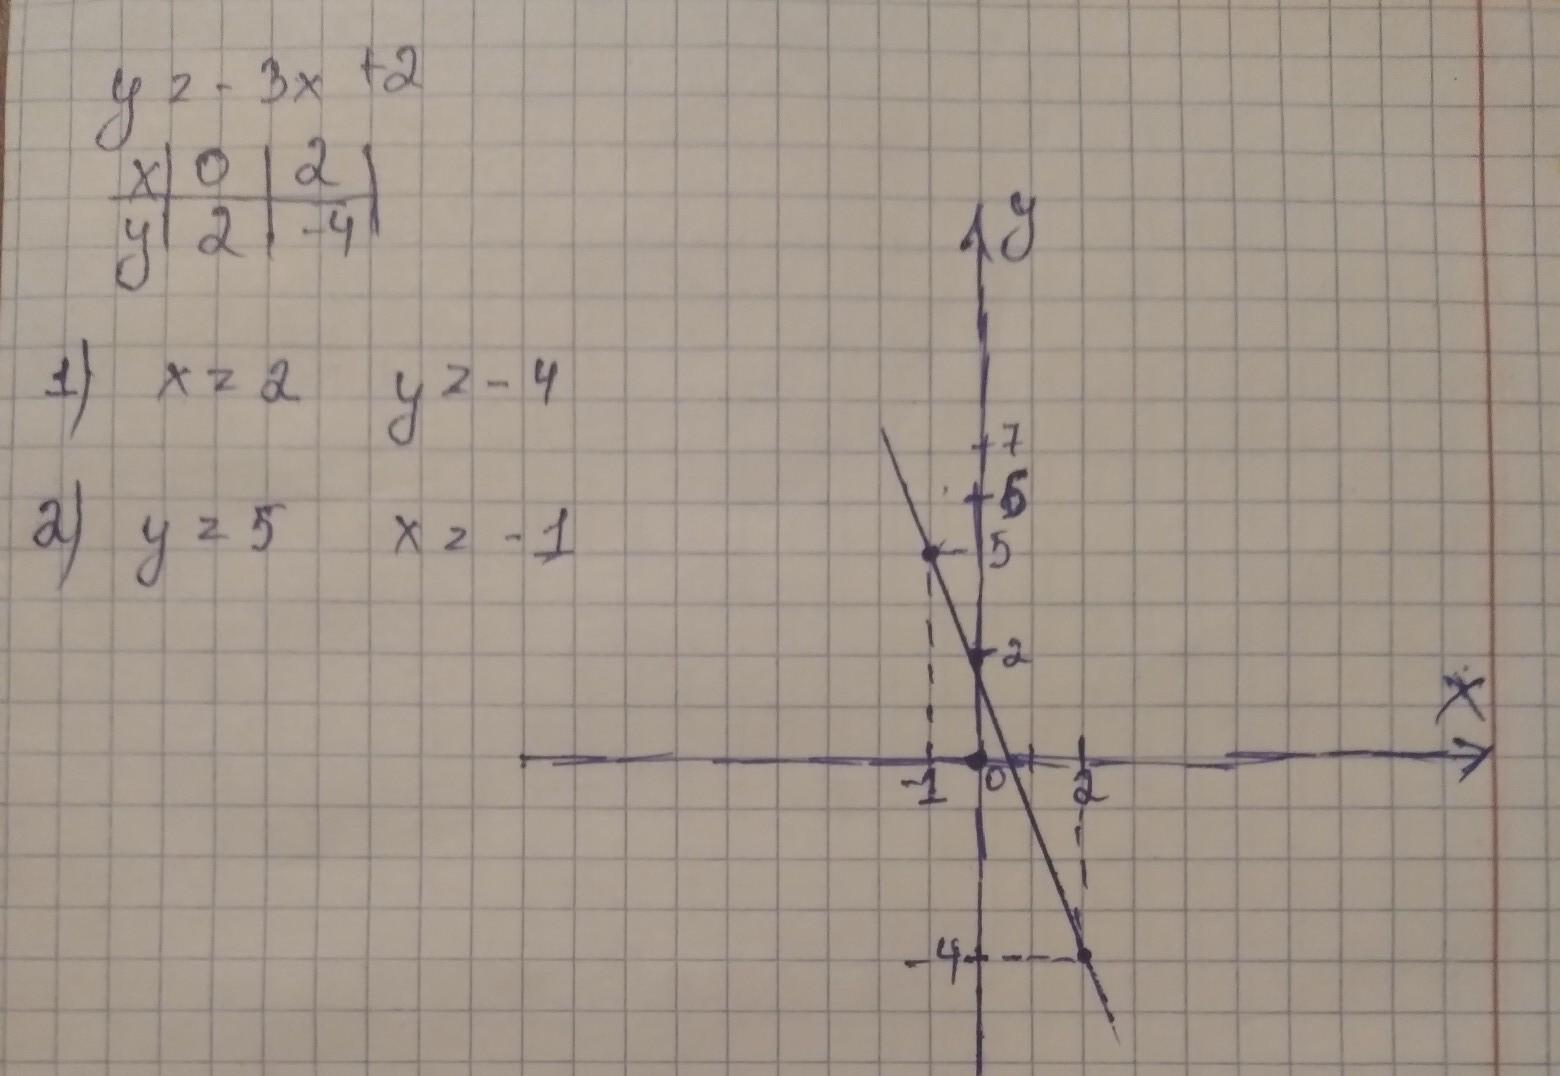 y = - 3x + 2
x | 0 | 2 |
y | 2 | -4 |
1) x = 2 y = - 4
2) y = 5 x = - 1
y
7
6
5
2
x
-1 0 2
-4